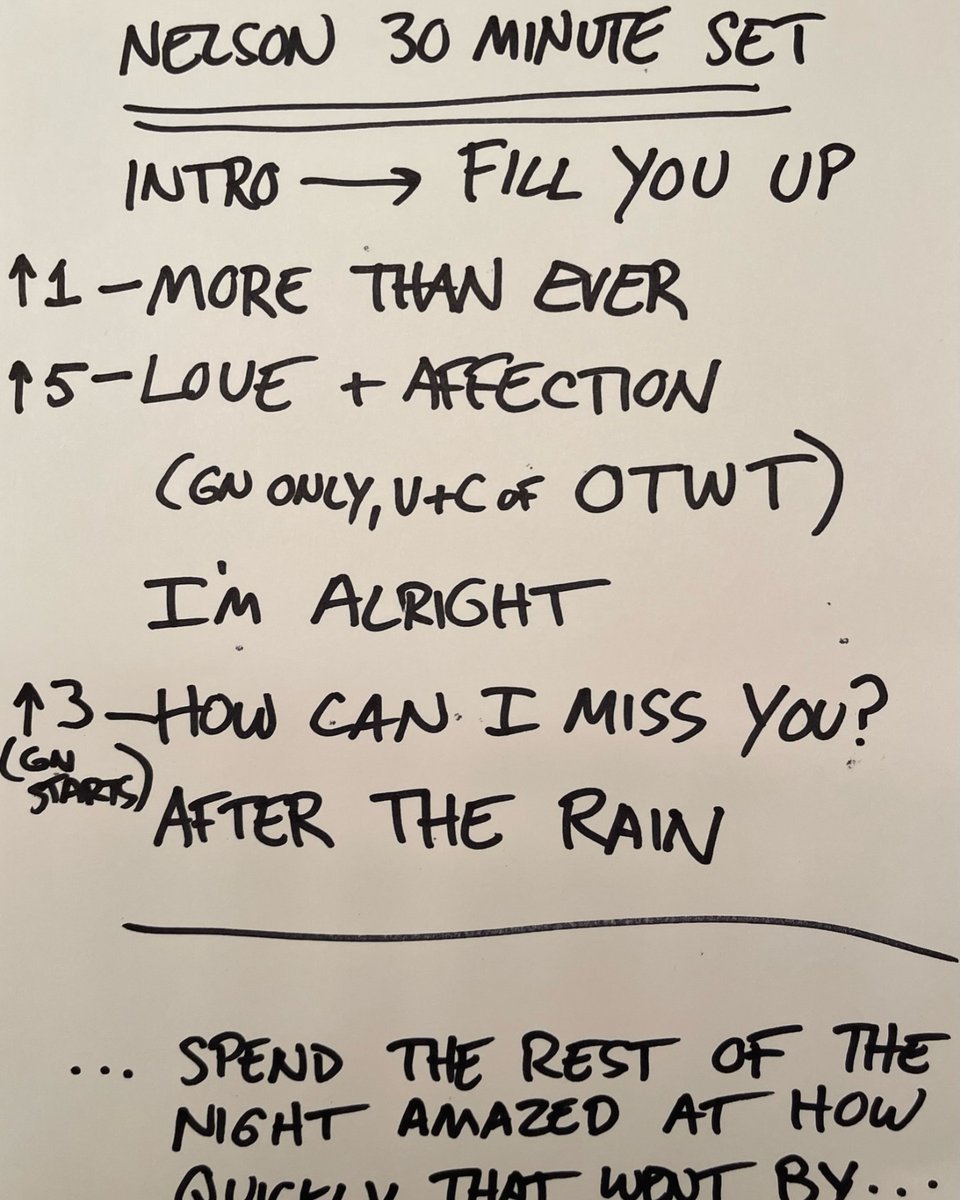 NELSON 30 MINUTE SET
INTRO → FILL YOU UP
↑1 – MORE THAN EVER
↑5 – LOVE + AFFECTION
(GN ONLY, V+C OF OTWT)
I'M ALRIGHT
↑3 – HOW CAN I MISS YOU?
(GN STARTS)
AFTER THE RAIN
... SPEND THE REST OF THE
NIGHT AMAZED AT HOW
QUICKLY THAT WENT BY...